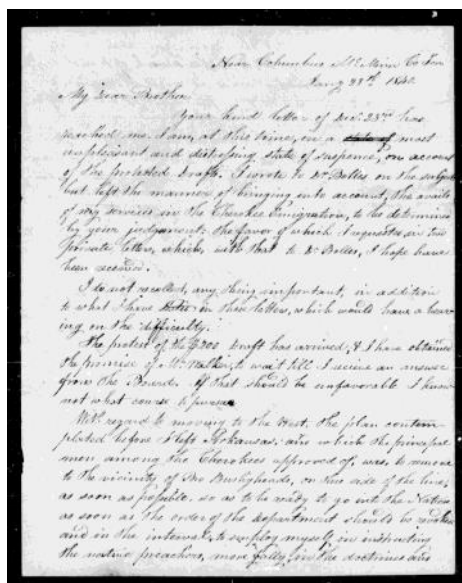 Near Columbus McMinn Co Ten
Jany 23rd 1840.
My Dear Brother
Your kind letter of Dec. 23rd has
reached me. I am, at this time, in a state of most
unpleasant and distressing state of suspense, on account
of the protested Draft. I wrote to Dr Bolles on the subject
but left the manner of bringing into account, the avails
of my services in the Cherokee Emigration, to be determined
by your judgement: the favor of which I requested in two
private letters, which, with that to Dr Bolles, I hope have
been received.
I do not recollect, any thing important, in addition
to what I have in these letters, which would have a bear-
ing on the difficulty.
The protest of the $200 Draft has arrived, & I have obtained
the promise of Mr. Walker, to wait till I receive an answer
from the Board. If that should be unfavorable I know
not what course to pursue
With regard to moving to the West, the plan contem-
plated before I left Arkansas, and which the principal
men among the Cherokees approved of, was, to remove
to the vicinity of Bro Bushyheads, on this side of the line,
as soon as possible. so as to be ready to go into the Nation
as soon as the order of the department should be revoked
and in the interval, to employ myself in instructing
the native preachers, more fully, in the doctrines and